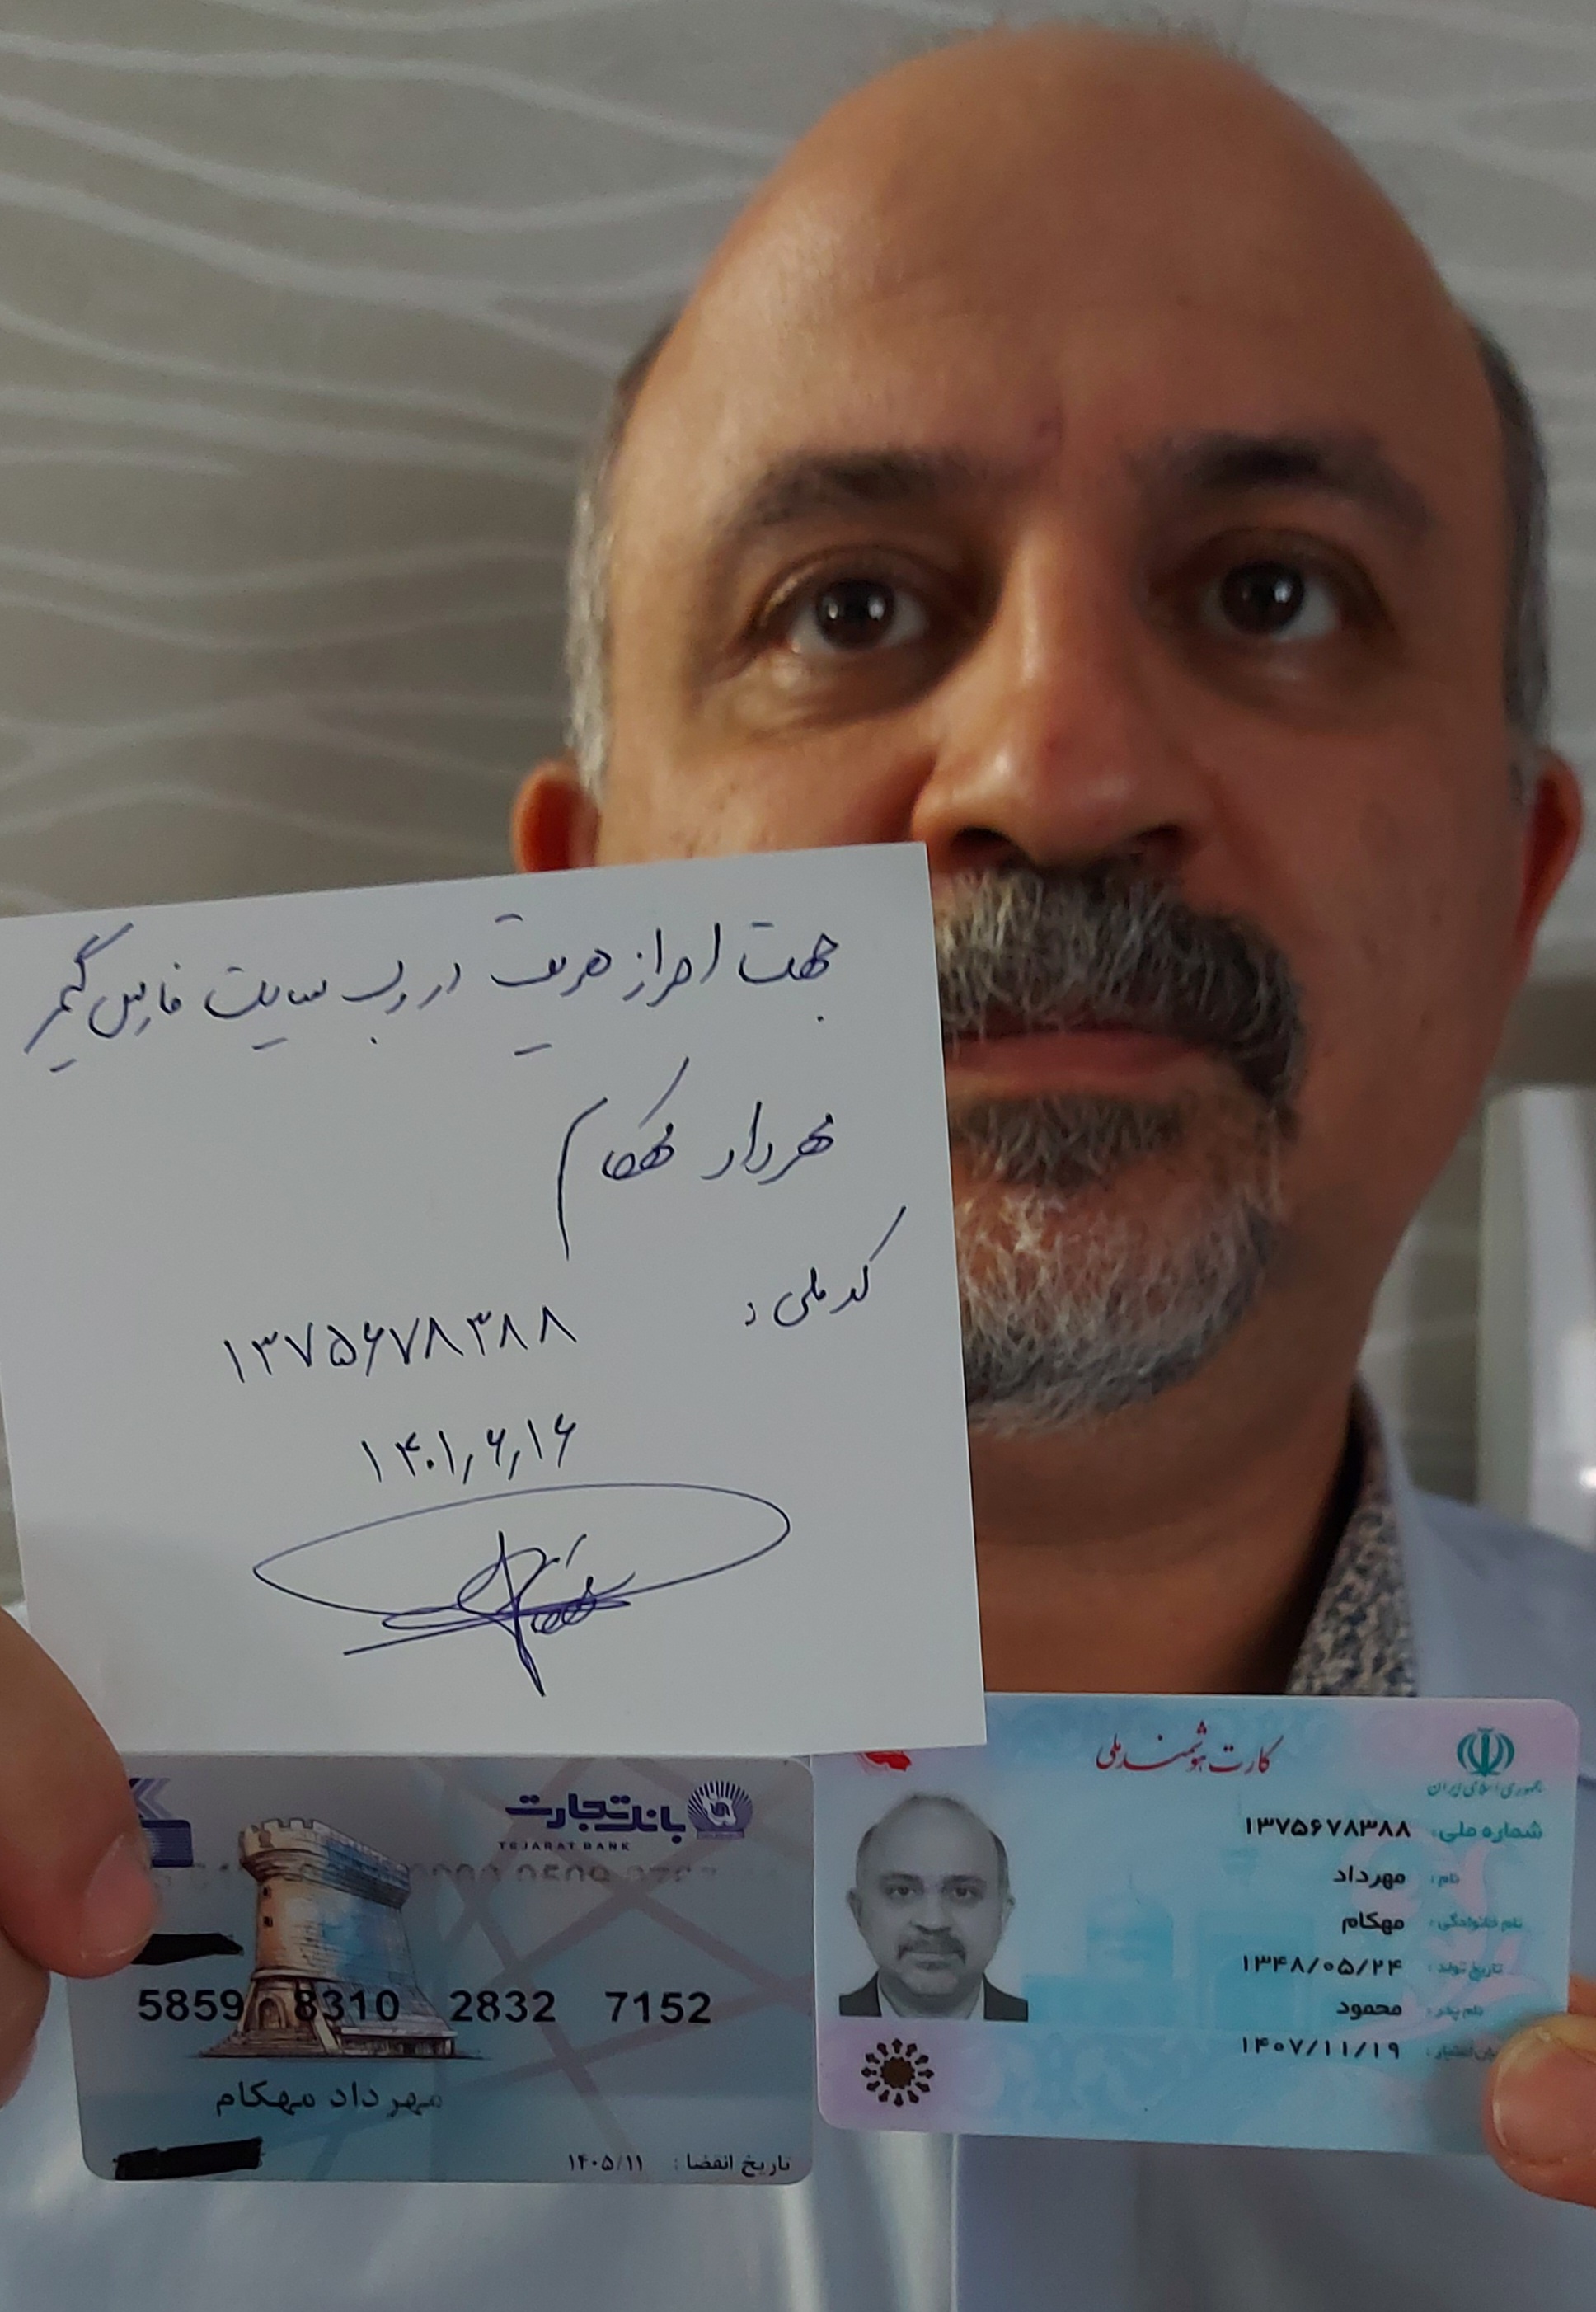 جهت احراز هویت در وب سایت فارس گیمر
مهرداد مهکام
کد ملی :
۱۳۷۵۶۷۸۳۸۸
۱۴۰۱/۶/۱۶
بانک تجارت
TEJARAT BANK
5859 8310 2832 7152
مهرداد مهکام
تاریخ انقضا : ۱۴۰۵/۱۱
کارت هوشمند ملی
جمهوری اسلامی ایران
شماره ملی: ۱۳۷۵۶۷۸۳۸۸
نام: مهرداد
نام خانوادگی: مهکام
تاریخ تولد: ۱۳۴۸/۰۵/۲۴
نام پدر: محمود
۱۴۰۷/۱۱/۱۹